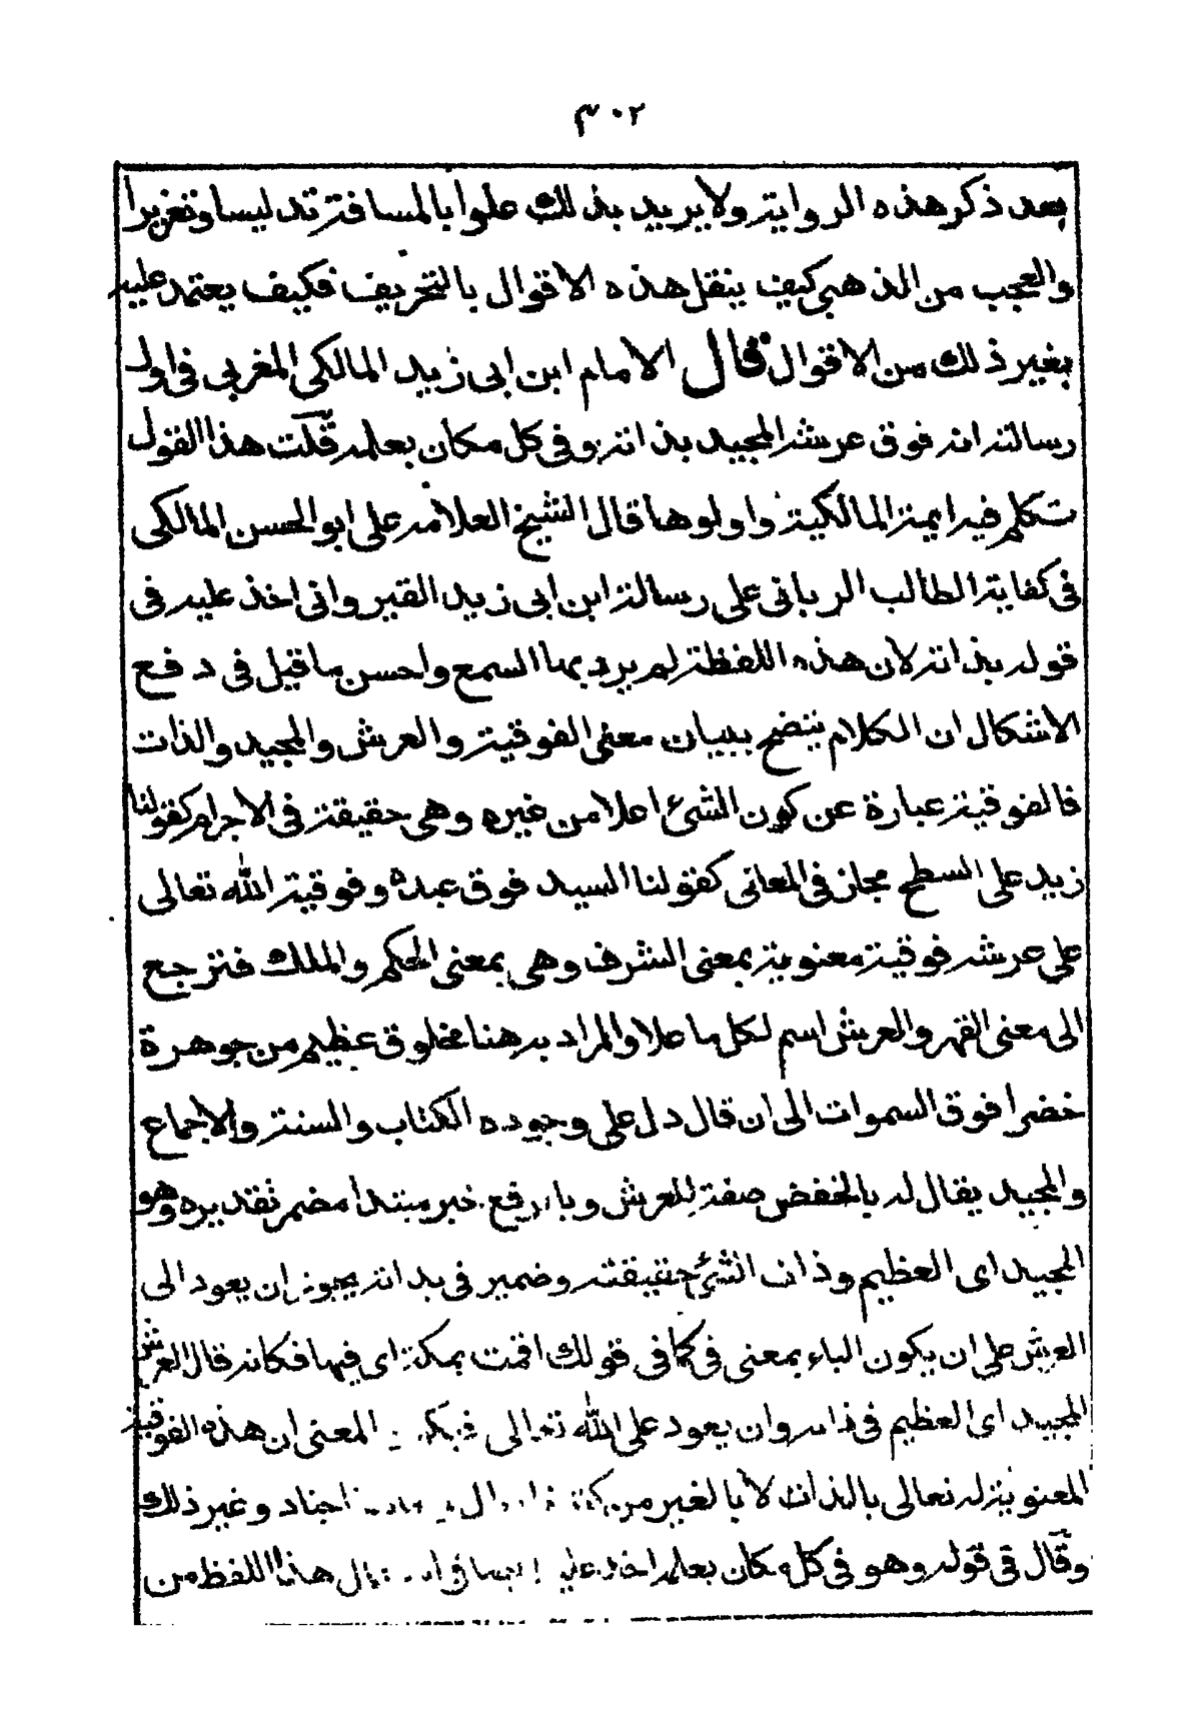 ٣٠٢
بعد ذكر هذه الرواية ولا يريد بذلك علوا بالمسافة تدليسا وتغريرا
والعجب من الذهبي كيف ينقل هذه الاقوال بالتحريف فكيف يعتمد عليه
بغير ذلك من الاقوال قال الامام ابن ابى زيد المالكى المغربى فى اول
رسالته انه فوق عرشه المجيد بذاته وفى كل مكان بعلمه قلت هذا القول
تكلم فيه ايمة المالكية واولوها قال الشيخ العلامه على ابو الحسن المالكى
فى كفاية الطالب الربانى على رسالة ابن ابى زيد القير وانى اخذ عليه فى
قوله بذاته لان هذه اللفظة لم يرد بها السمع واحسن ما قيل فى دفع
الاشكال ان الكلام يتضح ببيان معنى الفوقية والعرش والمجيد والذات
فالفوقية عبارة عن كون الشئ اعلا من غيره وهى حقيقة فى الاجرام كقولنا
زيد على السطح مجاز فى المعانى كقولنا السيد فوق عبده وفوقية الله تعالى
على عرشه فوقية معنوية بمعنى الشرف وهى بمعنى الحكم والملك فترجع
الى معنى القهر والعرش اسم لكل ما علا والمراد به هنا مخلوق عظيم من جوهرة
خضرا فوق السموات الى ان قال دل على وجوده الكتاب والسنة والاجماع
والمجيد يقال له بالخفض صفة للعرش وبالرفع خبر مبتدا مضمر تقديره وهو
المجيد اى العظيم وذات الشئ حقيقته وضمير فى بذاته يجوز ان يعود الى
العرش على ان يكون الباء بمعنى فى كما فى قولك اقمت بمكة اى فيها فكانه قال العرش
المجيد اى العظيم فى ذاته وان يعود على الله تعالى فيكون المعنى ان هذه الفوقية
المعنوية له تعالى بالذات لا بالغير من كثرة اجناد وغير ذلك
وقال فى قوله وهو فى كل مكان بعلمه اخذ عليه هذا اللفظ من